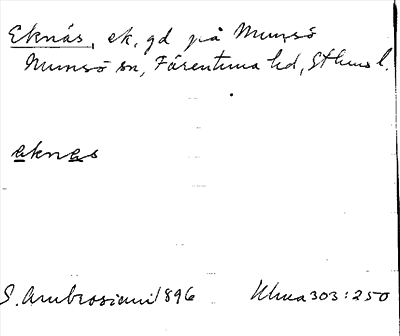 Eknäs, ek, gd på Munsö
Munsö sn, Färentuna hd, Sthms l.
eknes
S. Ambrosiani 1896 Ulma 303:250